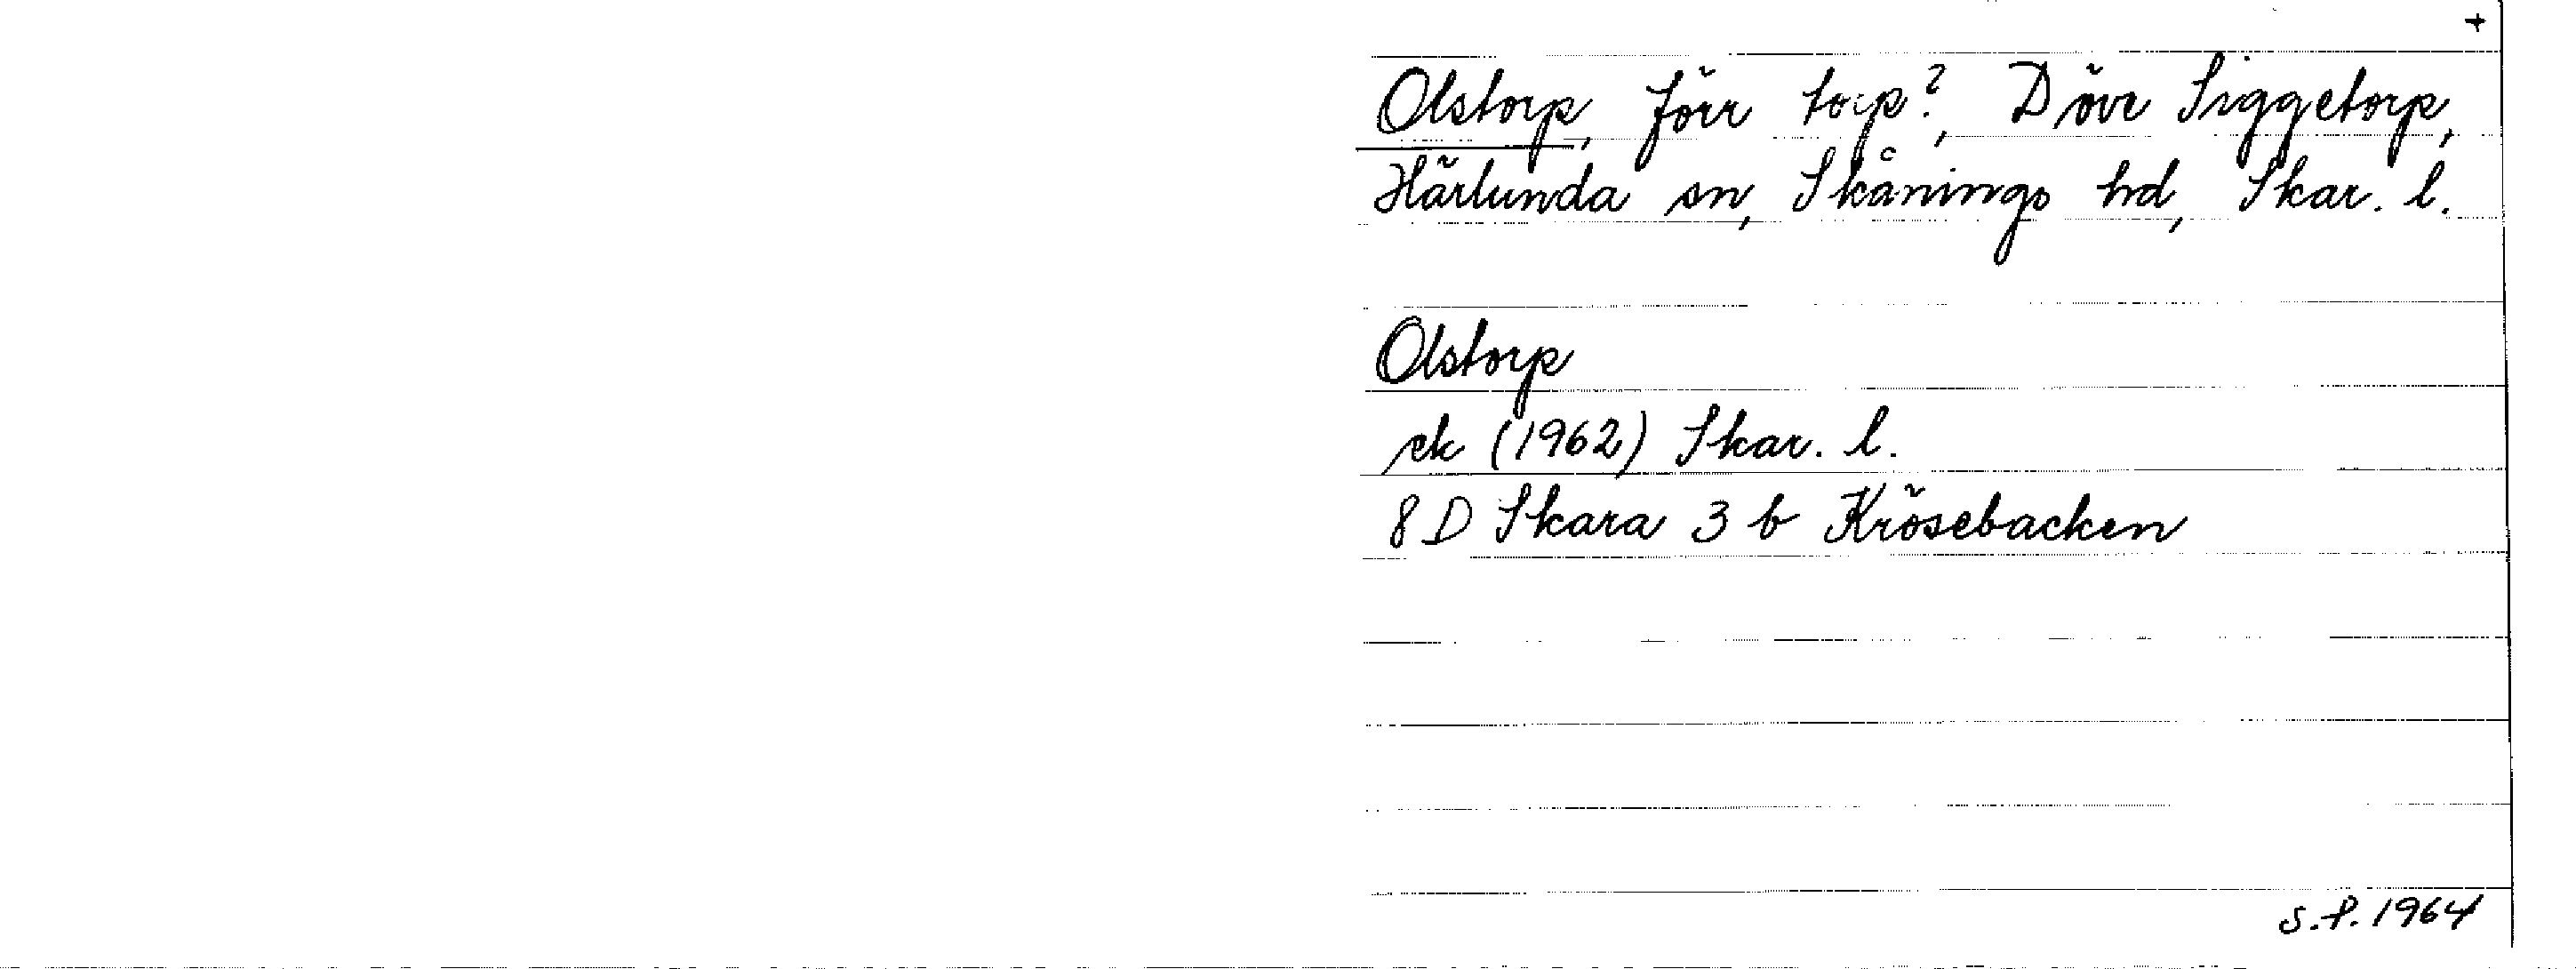 +
Olstorp, förr torp?, Döve Siggetorp,
Härlunda sn, Skånings hd, Skar. l.
Olstorp
ek (1962) Skar. l.
8 D Skara 3 b Krösebacken
S.F. 1964